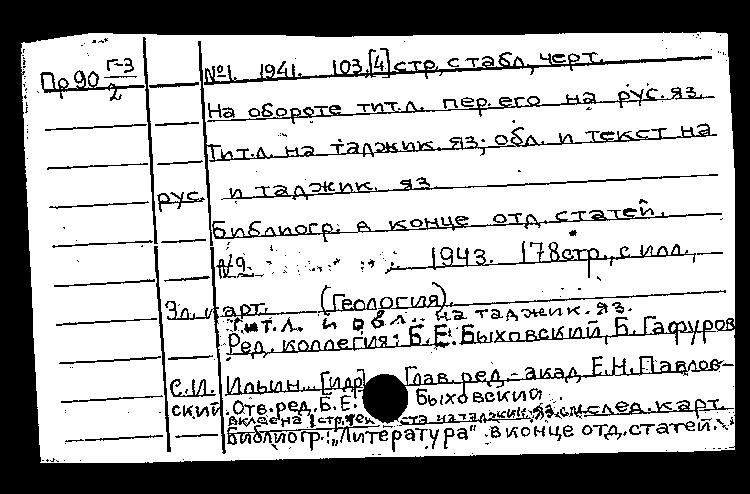 Пр 90 Г-3/2
№1. 1941. 103,[4] стр, с табл, черт.
На обороте тит.л. пер. его на рус. яз.
Тит.л. на таджик. яз; обл. и текст на
рус. и таджик. яз
Библиогр. в конце отд. статей.
№2. 1943. 178 стр., с илл.,
Эл. карт. (Геология).
Тит.л. и обл. на таджик. яз.
Ред. коллегия: Б.Е. Быховский, Б. Гафуров
С.И. Ильин [и др] Глав. ред. - акад. Е.Н. Павлов-
ский. Отв. ред. Б.Е. Быховский.
вклеена 1 стр. текста на таджик. яз. см. след. карт.
Библиогр: „Литература" в конце отд. статей.